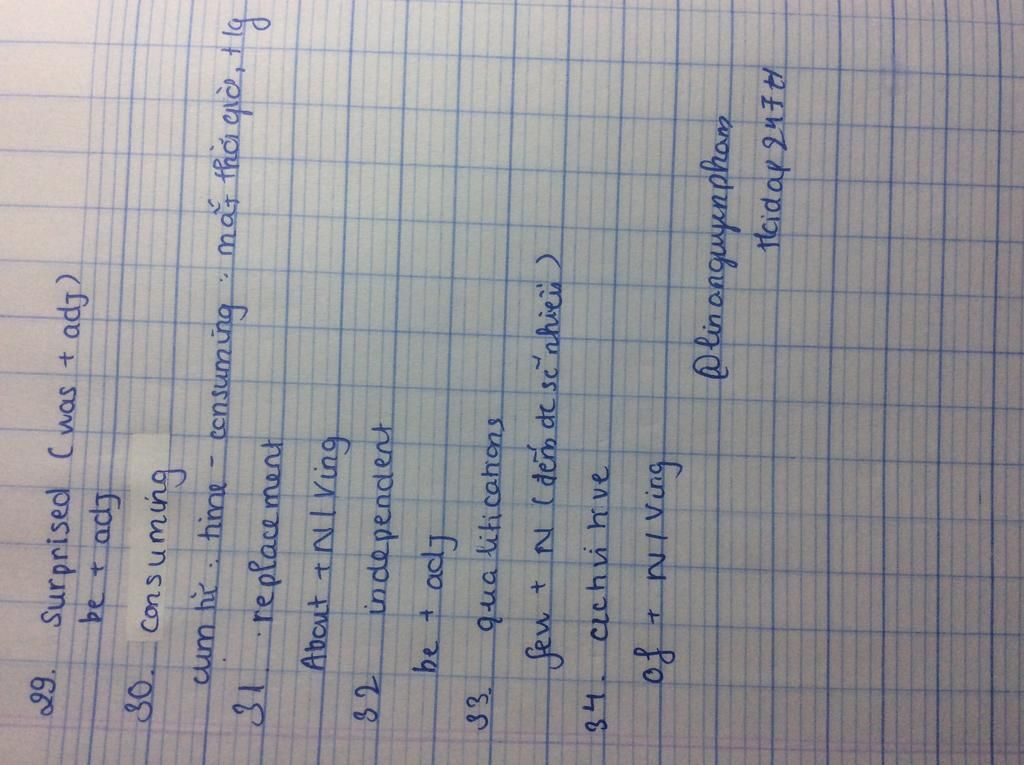 29. Surprised (was + adj)
be + adj
30. consuming
cụm từ: time-consuming: mất thời giờ, tlg
31. replacement
About + N/Ving
32 independent
be + adj
33. qualifications
few + N (đếm đc số nhiều)
34.
Of + N/Ving
@linanguynpham
Hoidap 247H